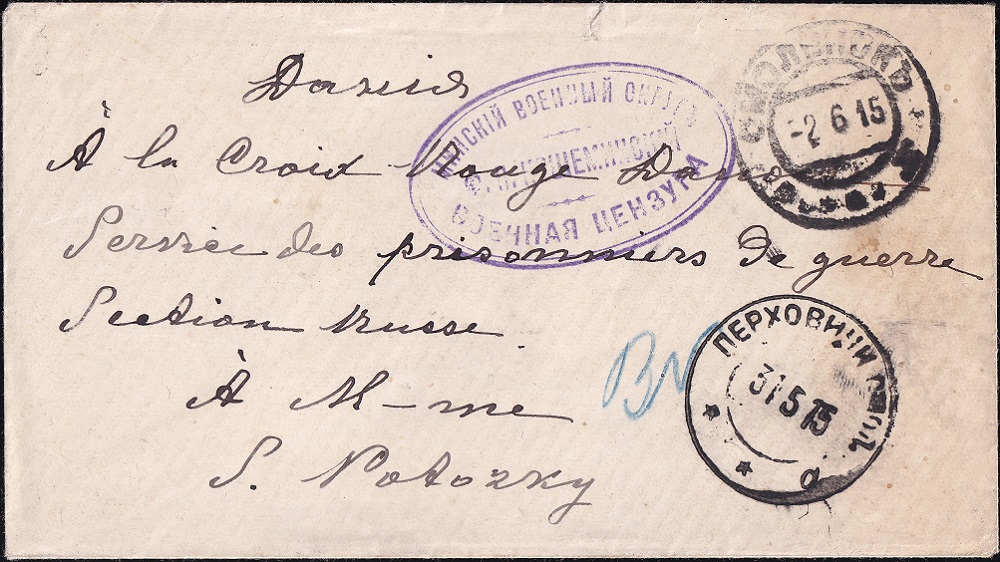 Дания
À la Croix Rouge
Service des prisonniers de guerre
Section Russe
À M-me
S. Potozky
ВОЕННЫЙ ОКРУГЪ
ВОЕННАЯ ЦЕНЗУРА
СМОЛЕНСКЪ
-2 6 15
ПЕРХОВИЧИ
31 5 15
а